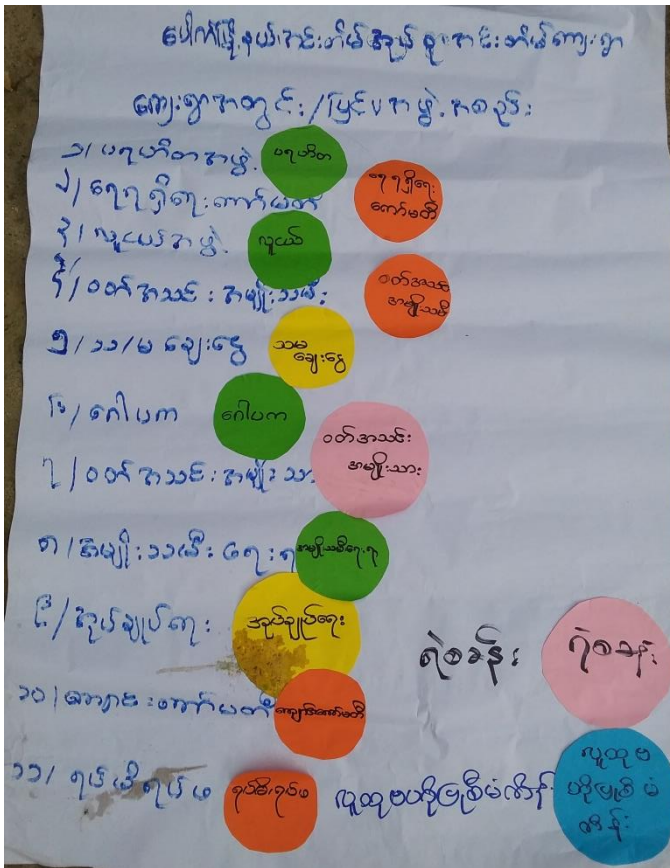 ပေါက်မြို့နယ်၊အင်းတိမ်အုပ်စု၊အင်းတိမ်ကျေးရွာ
ကျေးရွာအတွင်း/ပြင်ပအဖွဲ့အစည်း
၁/ ပရဟိတအဖွဲ့ ပရဟိတ
၂/ ရေရရှိရေးကော်မတီ ရေရရှိရေး ကော်မတီ
၃/ လူငယ်အဖွဲ့ လူငယ်
၄/ ဝတ်အသင်းအမျိုးသမီး ဝတ်အသင်း အမျိုးသမီး
၅/ သ/မ ချေးငွေ သမ ချေးငွေ
၆/ ဂေါပက ဂေါပက
၇/ ဝတ်အသင်းအမျိုးသား ဝတ်အသင်း အမျိုးသား
၈/ အမျိုးသမီးရေးရာ အမျိုးသမီးရေးရာ
၉/ အုပ်ချုပ်ရေး အုပ်ချုပ်ရေး
ရဲစခန်း ရဲစခန်း
၁၀/ ကျောင်းကော်မတီ ကျောင်းကော်မတီ
၁၁/ ရပ်မိရပ်ဖ ရပ်မိရပ်ဖ လူထုဗဟိုပြုစီမံကိန်း လူထုဗ ဟိုပြုစီမံ ကိန်း